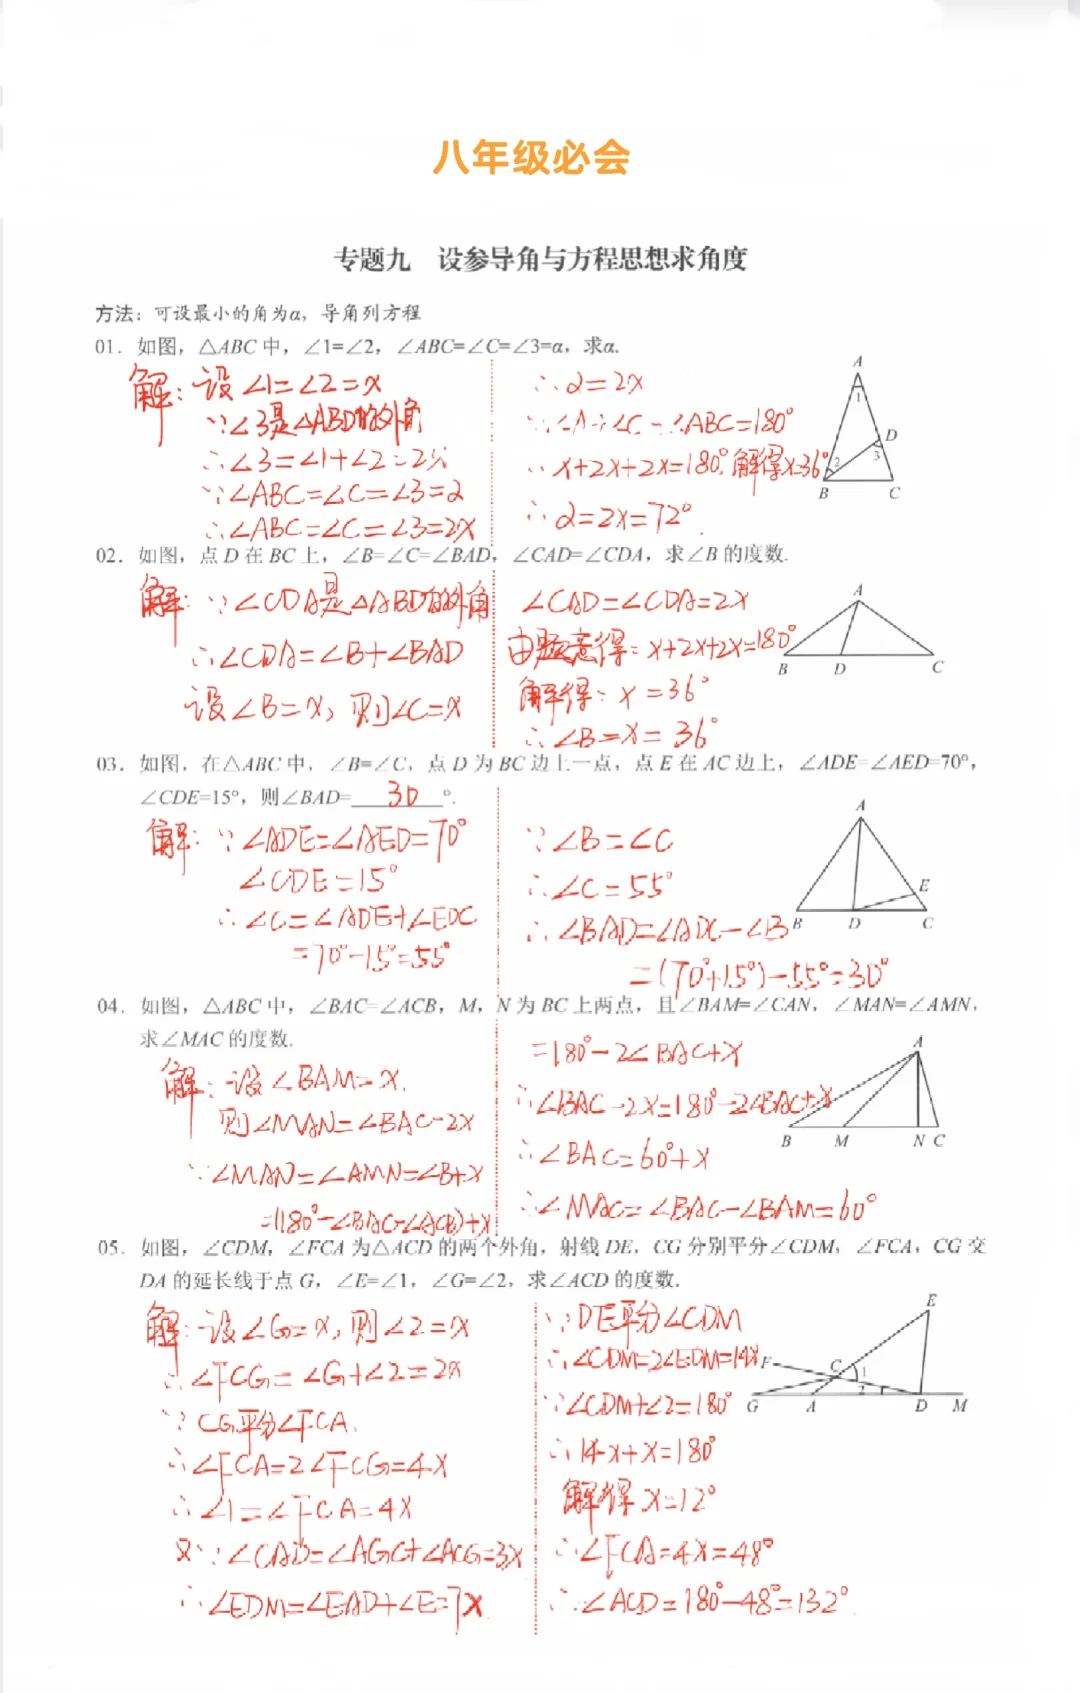 八年级必会
专题九 设参导角与方程思想求角度
方法：可设最小的角为α，导角列方程
01．如图，△ABC中，∠1=∠2，∠ABC=∠C=∠3=α，求α.
解：设∠1=∠2=x
∵∠3是△ABD的外角
∴∠3=∠1+∠2=2x
∵∠ABC=∠C=∠3=2
∴∠ABC=∠C=∠3=2x
∴α=2x
∵∠A+∠C+∠ABC=180°
∴x+2x+2x=180°.解得x=36°
∴α=2x=72°.
A
1
D
2
3
B C
02．如图，点D在BC上，∠B=∠C=∠BAD，∠CAD=∠CDA，求∠B的度数.
解：∵∠CDA是△ABD的外角
∴∠CDA=∠B+∠BAD
设∠B=x，则∠C=x
∠CAD=∠CDA=2x
由题意得：x+2x+2x=180°
解得：x=36°
∴∠B=x=36°
A
B D C
03．如图，在△ABC中，∠B=∠C，点D为BC边上一点，点E在AC边上，∠ADE=∠AED=70°，
∠CDE=15°，则∠BAD=30°.
解：∵∠ADE=∠AED=70°
∠CDE=15°
∴∠C=∠ADE+∠EDC
=70°-15°=55°
∵∠B=∠C
∴∠C=55°
∴∠BAD=∠ADC-∠B
=(70°+15°)-55°=30°
A
E
B D C
04．如图，△ABC中，∠BAC=∠ACB，M，N为BC上两点，且∠BAM=∠CAN，∠MAN=∠AMN，
求∠MAC的度数.
解：设∠BAM=x.
则∠MAN=∠BAC-2x
∵∠MAN=∠AMN=∠B+x
=(180°-∠BAC-∠ACB)+x
=180°-2∠BAC+x
∴∠BAC-2x=180°-2∠BAC+x
∴∠BAC=60°+x
∴∠MAC=∠BAC-∠BAM=60°
A
B M N C
05．如图，∠CDM，∠FCA为△ACD的两个外角，射线DE，CG分别平分∠CDM，∠FCA，CG交
DA的延长线于点G，∠E=∠1，∠G=∠2，求∠ACD的度数.
解：设∠G=x，则∠2=x
∴∠FCG=∠G+∠2=2x
∵CG平分∠FCA.
∴∠FCA=2∠FCG=4x
∴∠1=∠FCA=4x
又∵∠CAD=∠AGC+∠ACG=3x
∴∠EDM=∠EAD+∠E=7x
∵DE平分∠CDM
∴∠CDM=2∠EDM=14x
∵∠CDM+∠2=180°
∴14x+x=180°
解得x=12°
∴∠FCA=4x=48°
∴∠ACD=180°-48°=132°.
E
F C
1
2
G A D M